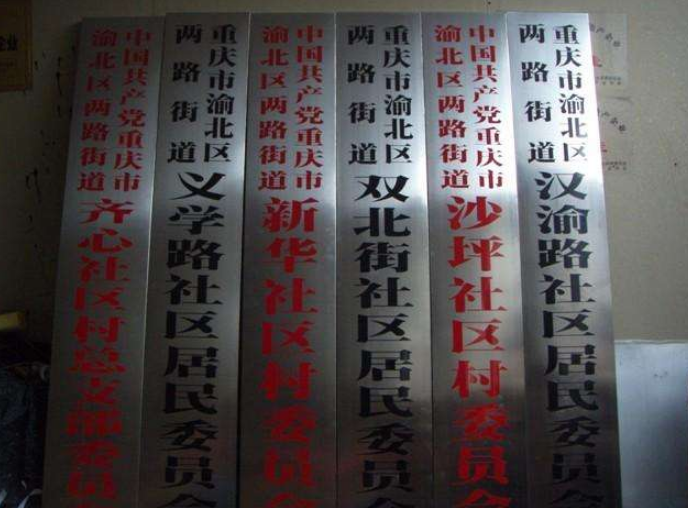 中国共产党重庆市
渝北区两路街道
齐心社区村总支部委员
重庆市渝北区
两路街道
义学路社区居民委员会
中国共产党重庆市
渝北区两路街道
新华社区村委员会
重庆市渝北区
两路街道
双北街社区居民委员会
中国共产党重庆市
渝北区两路街道
沙坪社区村委员会
重庆市渝北区
两路街道
汉渝路社区居民委员会